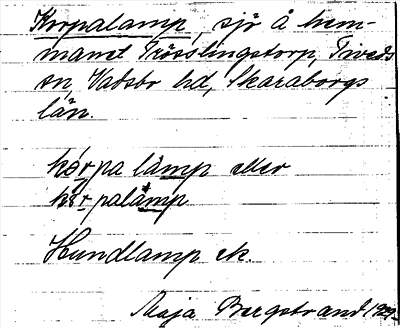 Korpalamp, sjö å hem-
manet Trösslingstorp, Tiveds
sn, Vadsbo hd, Skaraborgs
län.
kørpa làmp eller
kørpalàmp
Hundlamp ek.
Maja Bergstrand 1929